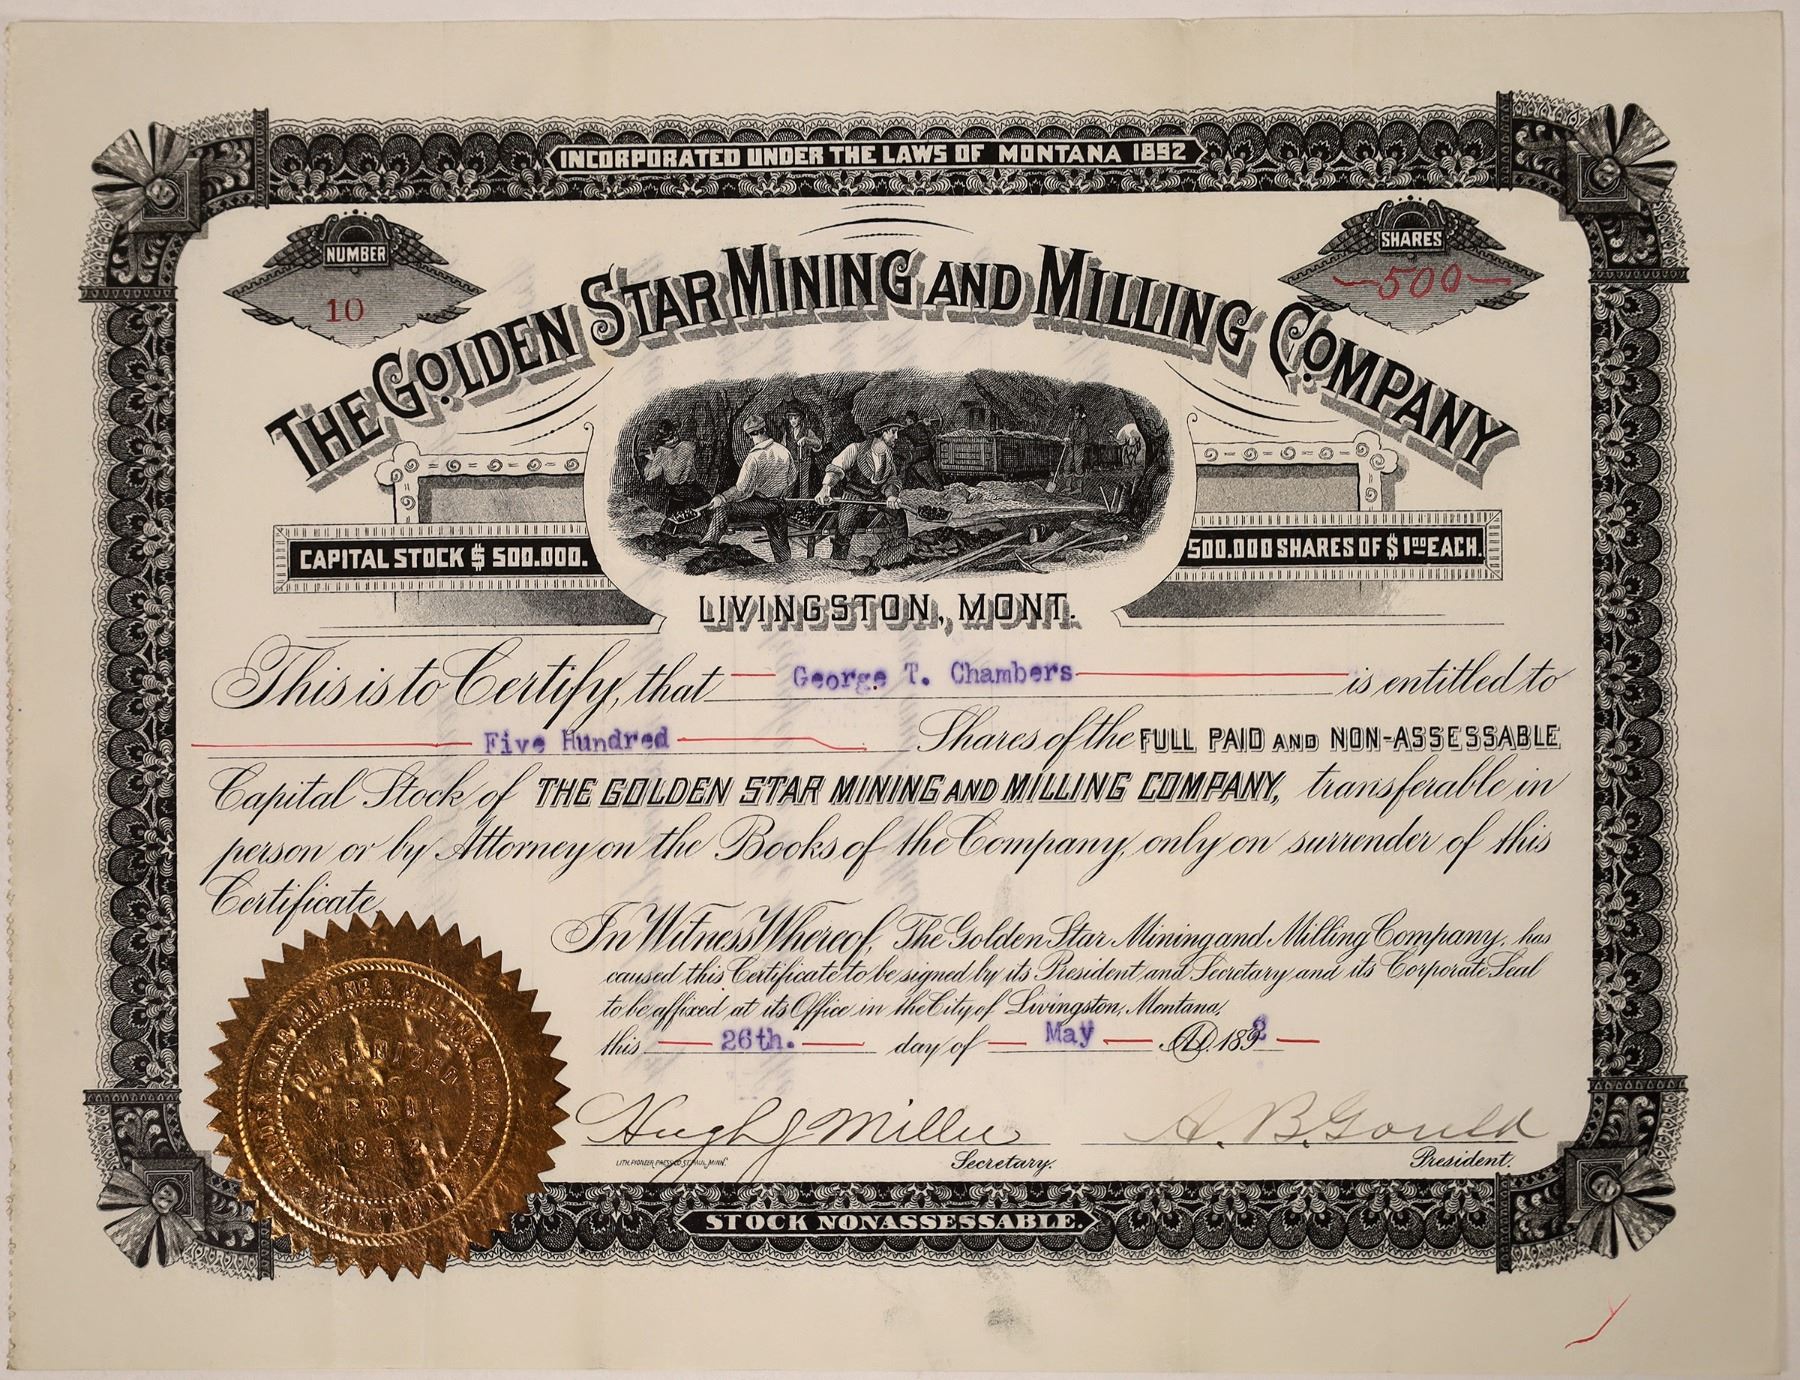 INCORPORATED UNDER THE LAWS OF MONTANA 1892
NUMBER
10
SHARES
500
THE GOLDEN STAR MINING AND MILLING COMPANY
CAPITAL STOCK $ 500.000.
500.000 SHARES OF $1.00 EACH.
LIVINGSTON, MONT.
This is to Certify, that George T. Chambers is entitled to
Five Hundred Shares of the FULL PAID AND NON-ASSESSABLE
Capital Stock of THE GOLDEN STAR MINING AND MILLING COMPANY, transferable in
person or by Attorney on the Books of the Company, only on surrender of this
Certificate.
In Witness Whereof, The Golden Star Mining and Milling Company, has
caused this Certificate to be signed by its President and Secretary and its Corporate Seal
to be affixed at its Office in the City of Livingston, Montana,
this 26th. day of May A.D. 1892
GOLDEN STAR MINING & MILLING COMPANY
ORGANIZED
APRIL
1892
MONTANA
Hugh J Miller
A. B. Gould
LITH. PIONEER PRESS CO ST. PAUL, MINN.
Secretary.
President.
STOCK NONASSESSABLE.